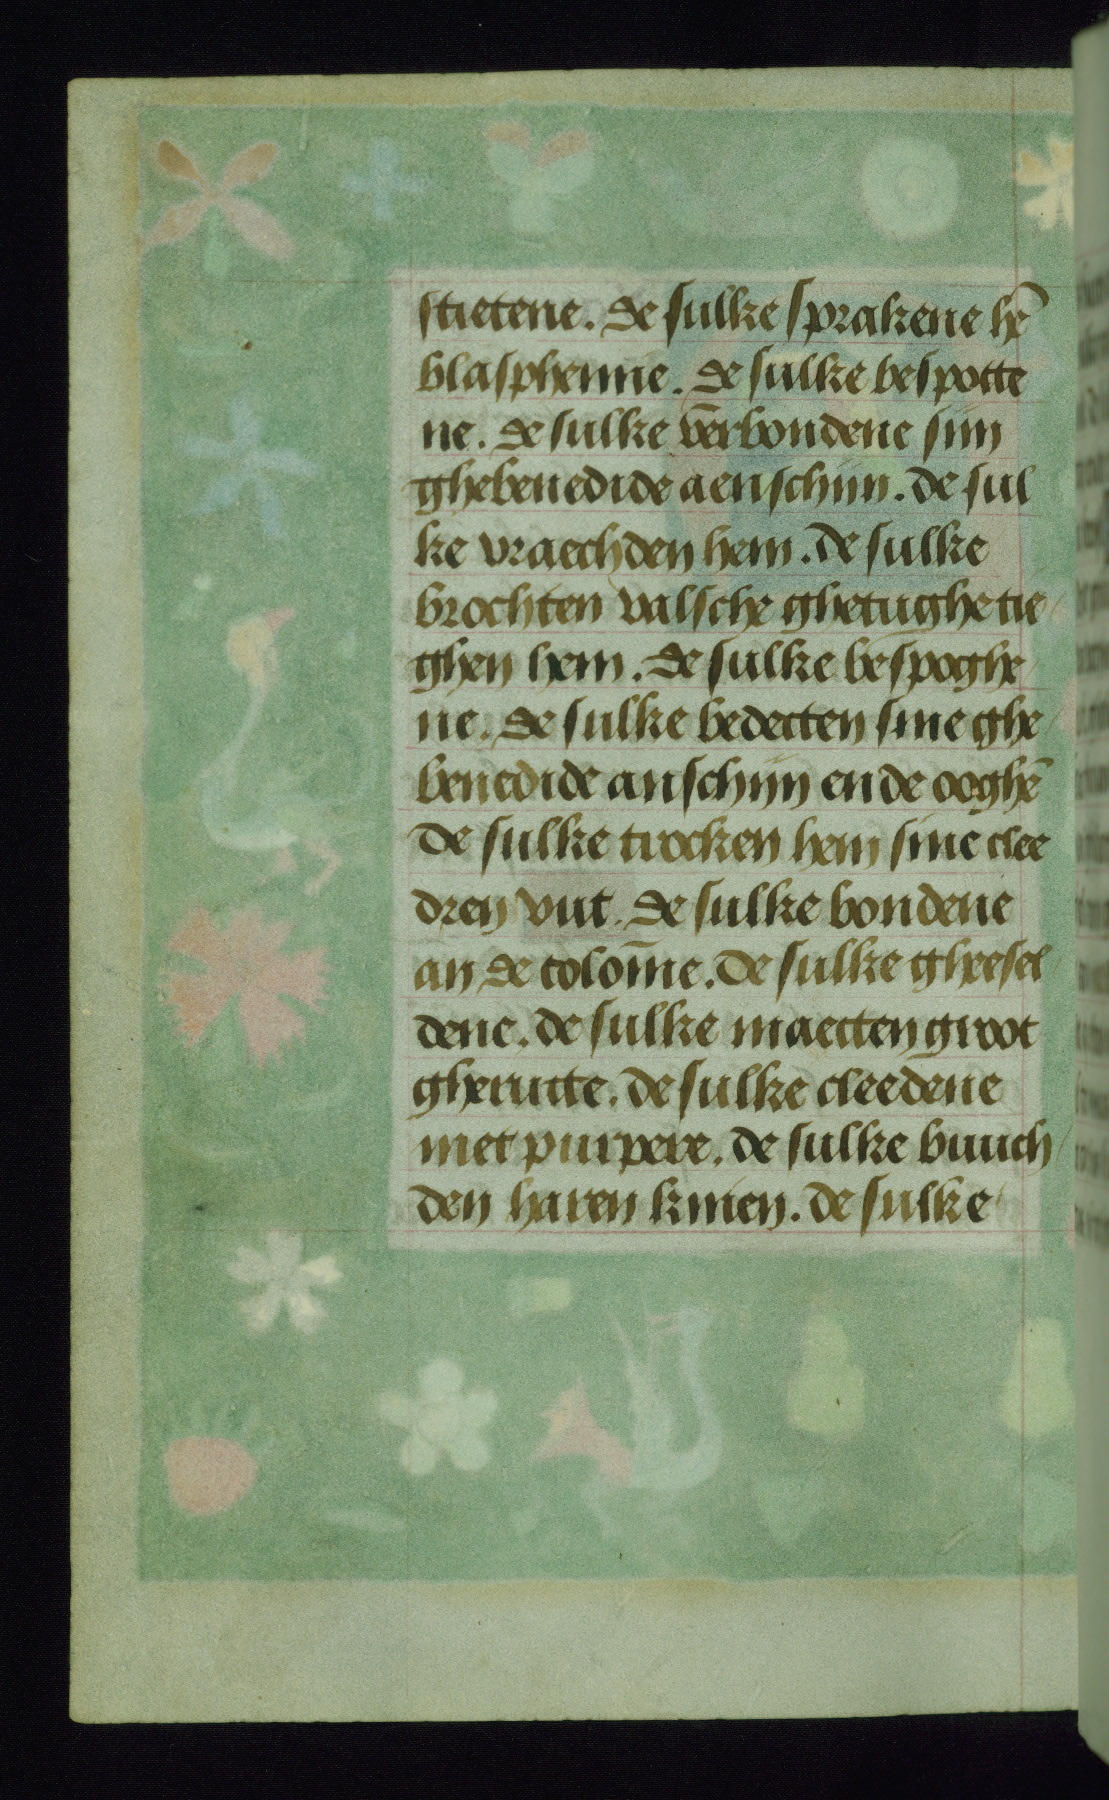 stietene. De sulke sprakene hē
blasphemie. De sulke bespotte
ne. De sulke verbondene sijn
ghebenedide aenschijn. De sul
ke vraechden hem. De sulke
brochten valsche ghetughe tie
ghen hem. De sulke bespoghe
ne. De sulke bedecten sine ghe
benedide anschijn ende ooghē
De sulke trocken hem sine clee
dren vut. De sulke bondene
an de colōme. De sulke gheesel
dene. de sulke maecten groot
gheructe. de sulke cleedene
met purpere. de sulke buuch
den haren knien. de sulke